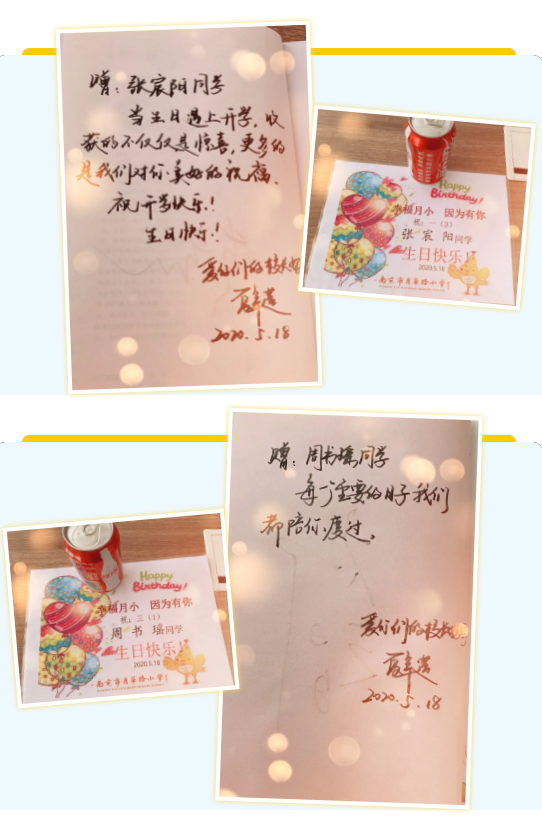 赠：张宸阳同学
当生日遇上开学，收
获的不仅仅是惊喜，更多的
是我们对你美好的祝福。
祝开学快乐！
生日快乐！
爱你们的校长妈
2020.5.18
Happy
Birthday!
幸福月小 因为有你
祝：一（3）
张 宸 阳同学
生日快乐！
2020.5.18
南京市月华路小学
赠：周书瑶同学
每一个重要的日子我们
都陪你度过。
爱你们的校长妈
2020.5.18
Happy
Birthday!
幸福月小 因为有你
祝：三（1）
周 书 瑶同学
生日快乐！
2020.5.18
南京市月华路小学